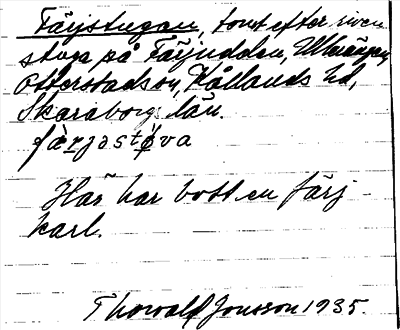 Färjstugan, tomt efter riven
stuga på Färjudden, Ullersängen,
Otterstads sn, Kållands hd,
Skaraborgs län.
fæ̀rjəstø̄va
Här har bott en färj-
karl.
Thorvald Jonsson 1935.